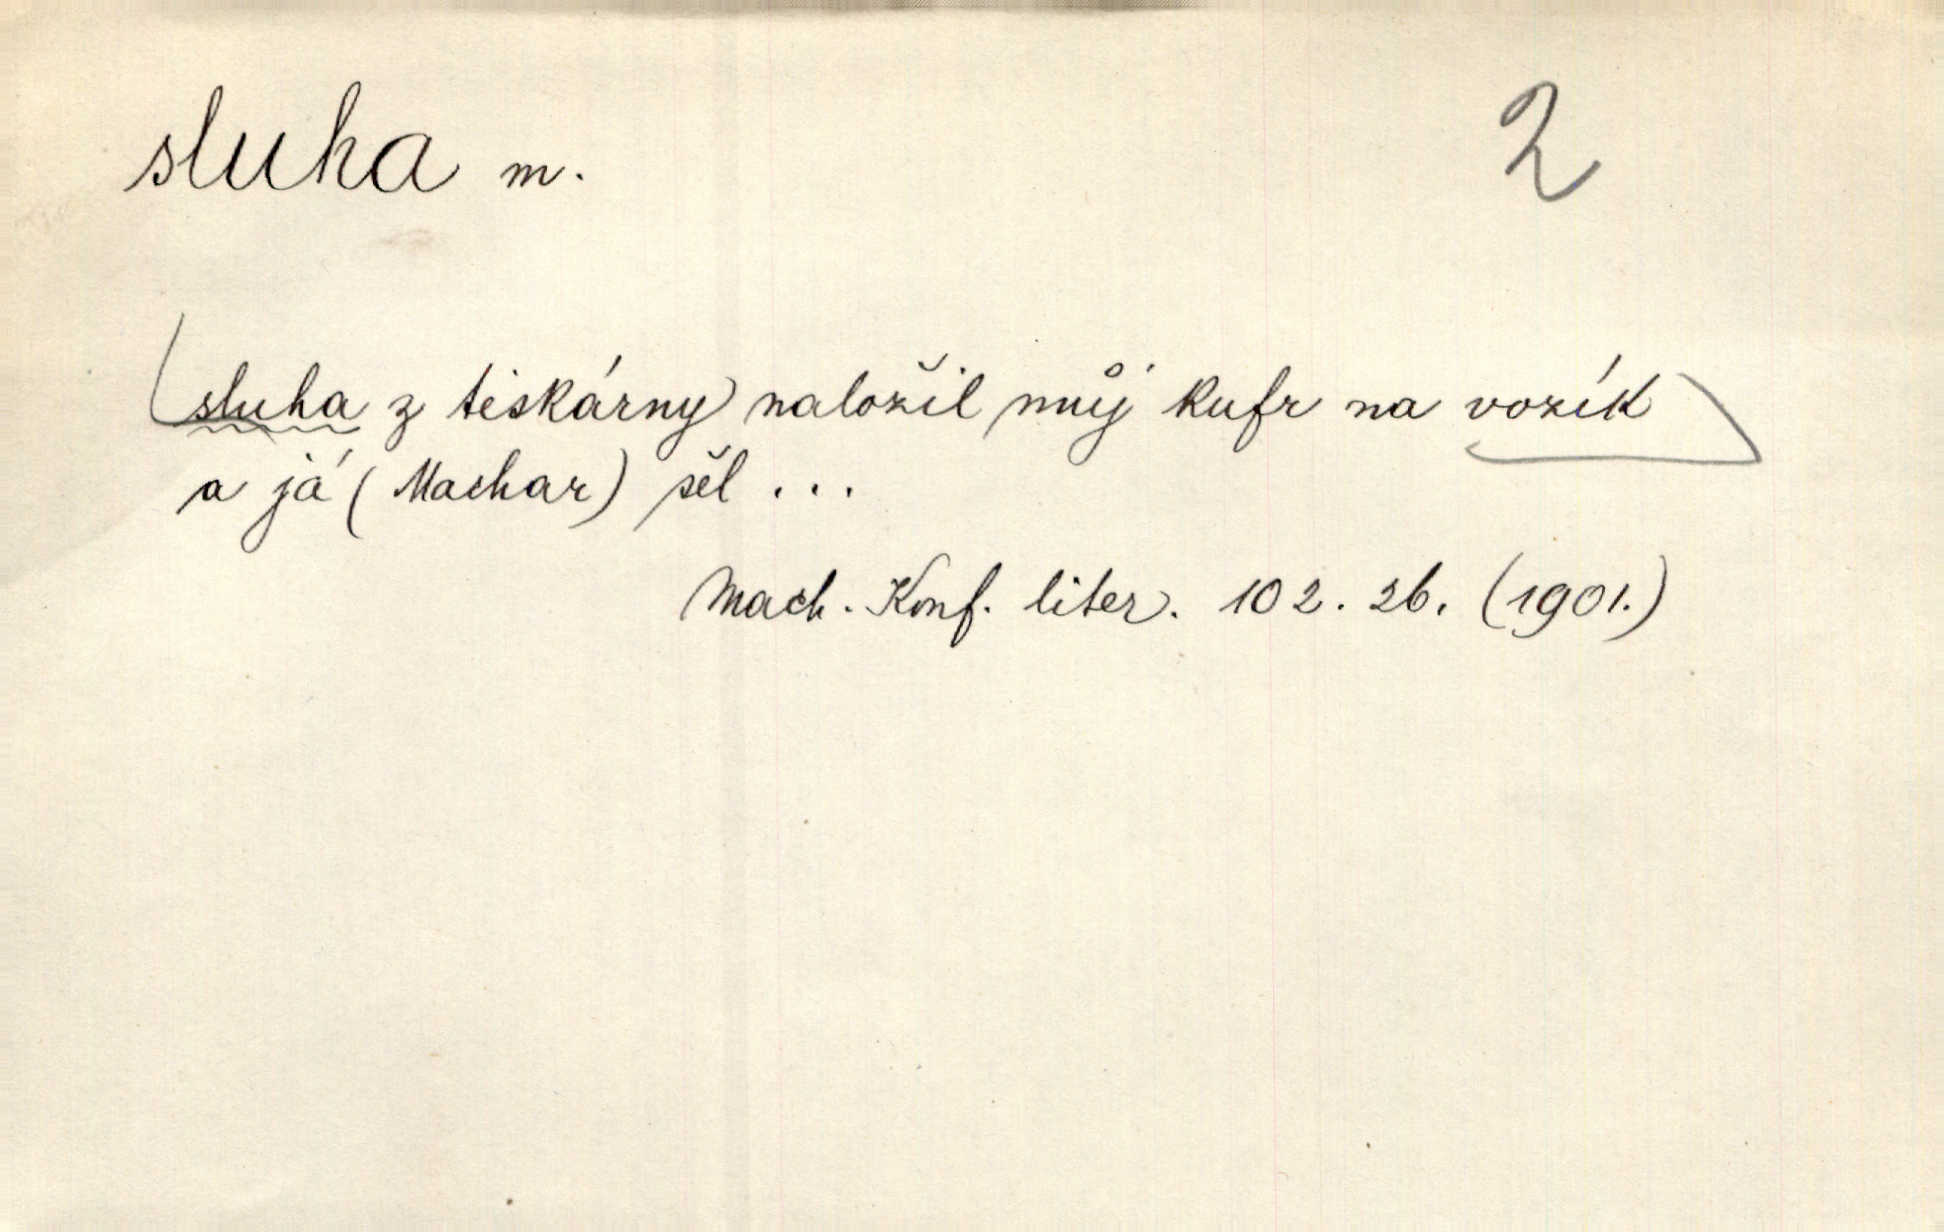 sluha m. 2
sluha z tiskárny naložil můj kufr na vozík
a já (Machar) šel ...
Mach. Konf. liter. 102. 26. (1901.)